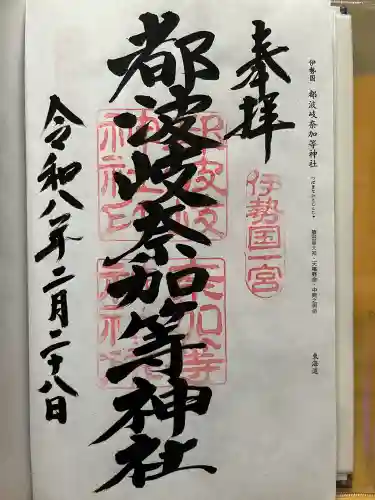 伊勢国 都波岐奈加等神社
東海道
奉拝
伊勢国一宮
都波岐奈加等神社
都波岐
神社印
奈加等
神社
令和八年二月二十八日